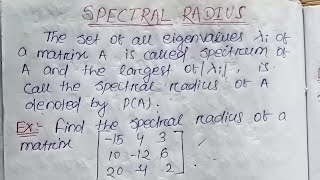 SPECTRAL RADIUS
The set of all eigenvalues λi of
a matrix A is called spectrum of
A and the largest of |λi|, is
call the spectral radius of A
denoted by P(A).
Ex:- Find the spectral radius of a
matrix
-15 4 3
10 -12 6
20 -4 2